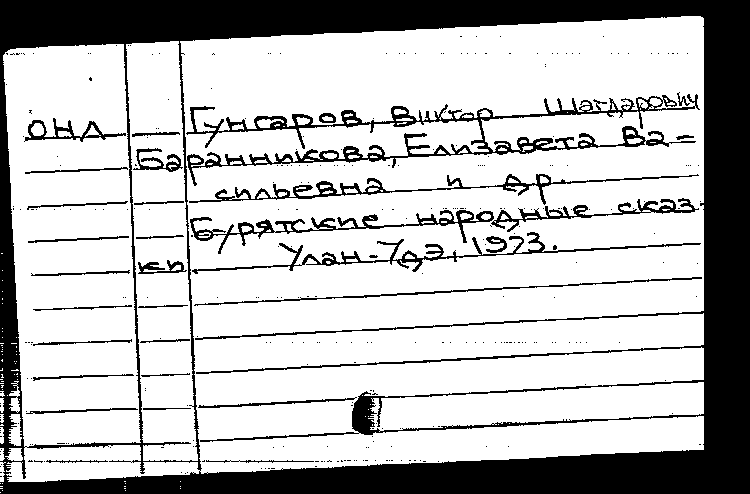 ОНЛ Гунгаров, Виктор Шагдарович
Баранникова, Елизавета Ва=
сильевна и др.
Бурятские народные сказ-
ки. Улан-Удэ, 1973.